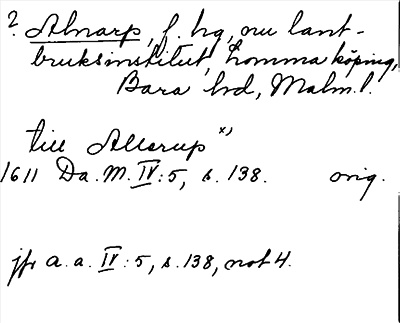 ? Alnarp, f. hg, nu lant-
bruksinstitut, Lomma köping,
Bara hd, Malm. l.
till Allerup x)
1611 Da. M. IV: 5, s. 138. orig.
jfr a. a. IV: 5, s. 138, not 4.